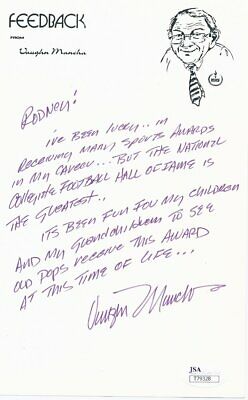 FEEDBACK
FROM
Vaughn Mancha
RODNEY!
I'VE BEEN LUCKY.. IN
RECEIVING MANY SPORTS AWARDS
IN MY CAREER... BUT THE NATIONAL
COLLEGIATE FOOTBALL HALL OF FAME IS
THE GREATEST..
ITS BEEN FUN FOR MY CHILDREN
AND MY GRANDCHILDREN TO SEE
OLD POPS RECEIVE THIS AWARD
AT THIS TIME OF LIFE...
Vaughn Mancha
JSA
T79328